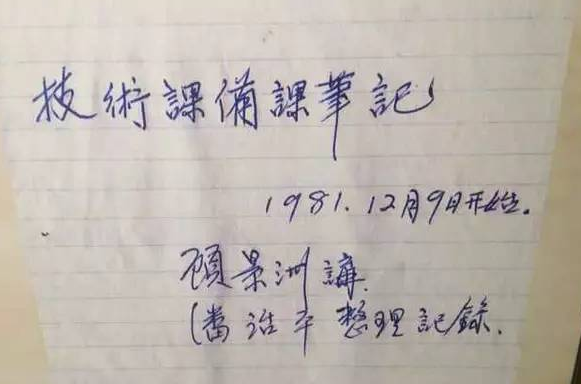 技術課備課筆記
1981.12月9日开始.
顾景洲講.
(潘持平整理記錄.